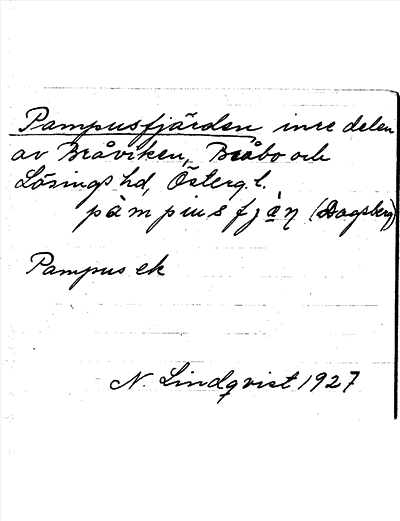 Pampusfjärden inre delen
av Bråviken, Bråbo och
Lösings hd, Österg. l.
pàmpusfjàṇ (Dagsberg)
Pampus ek
N. Lindqvist 1927